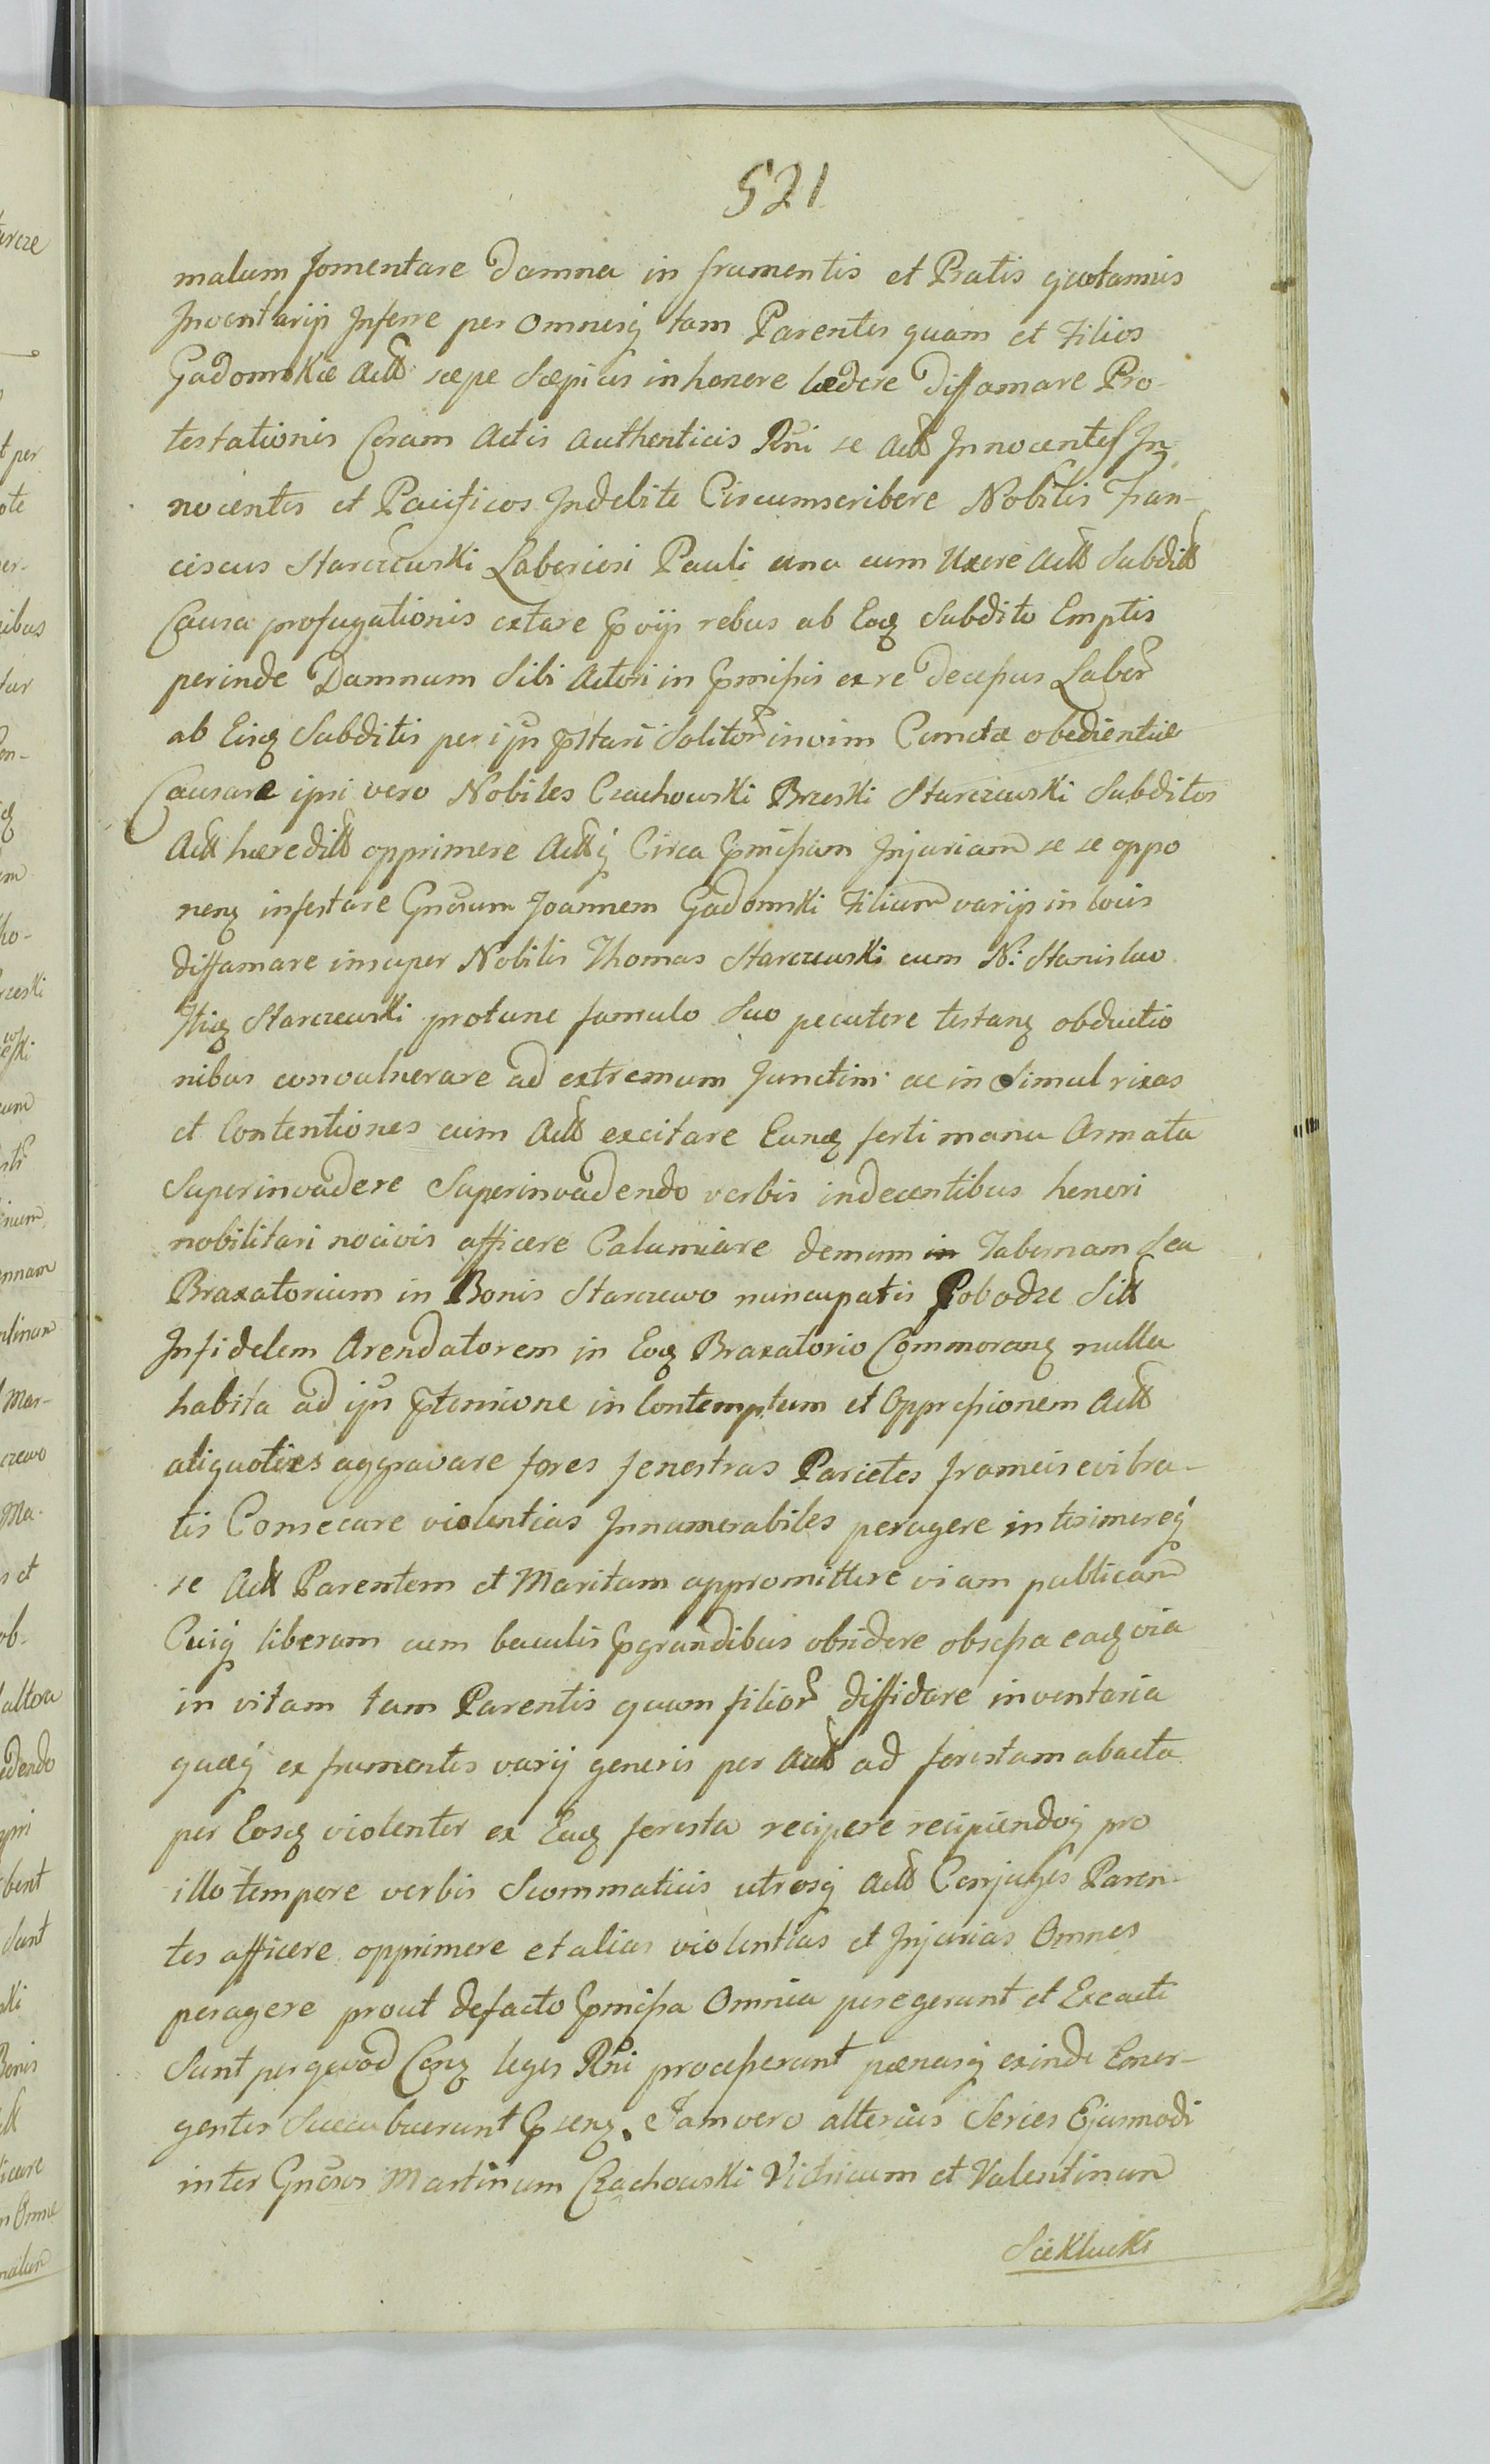 521
malum fomentare Damna in frumentis et Pratis quotannis
Inventarijs Inferre per omnesq́ tam Parentes quam et Filios
Gadomskie Actt sæpe Sæpius in honore lædere diffamare Pro-
testationis Coram Actis Authenticis Rñi se Actt Innocentes In-
nocentes et Pacificos Indebite Circumscribere Nobilis Fran-
ciscus Starczewski Laboriosi Pauli una cum Uxore Actt Subditt
Causa profugationis extare pvijs rebus ab Eoq Subdito Emptis
perinde Damnum Sibi Actori in pmissis ex re Decessus Labor
ab Eisq Subditis per ipsn pstari Solitor in vim Cunctæ obedientiæ
Causare ipsi vero Nobiles Czachowski Brzeski Starczewski Subditos
Actt hæreditt opprimere Acttq́ Circa pmissam Injuriam se se oppo
nenq infestare Gnosum Joannem Gadomski Filium varijs in locis
diffamare insuper Nobilis Thomas Starczewski cum N: Stanislao
Itiq Starczewski protunc famulo Suo pecutere testanq obductio
nibus convulnerare ad extremum Junctim ac in Simul rixas
et Contentiones cum Actt excitare Eunq forti manu Armata
Superinvadere Superinvadendo verbis indecentibus honori
nobilitari nocivis afficere Calumiare demum in Tabernam Seu
Braxatorium in Bonis Starczewo nuncupatis Pobodze Sitt
Infidelem Arendatorem in Eoq Braxatorio Commoranq nulla
habita ad ipsn ptensione in Contemptum et Oppressionem Actt
aliquoties aggravare fores fenestras Parietes frameis evibra-
tis Consecare violentias Innumerabiles peragere interimereq́
se Actt Parentem et Maritum appromittere viam publicam
Cuiq́ liberam cum baculis pgrandibus obsidere obsessa eaq via
in vitam tam Parentis quam filior diffidare inventaria
quæq́ ex frumentis varij generis per Actt ad forestam abacta
per Eosq violenter ex Eaq foresta recipere recipiendoq́ pro
illo tempore verbis Scommaticis utrosq́ Actt Conjuges Paren-
tes afficere opprimere et alias violentias et Injurias Omnes
peragere prout defacto pmissa Omnia peregerunt et Exacti
Sunt perqvod Conq leges Rñi processerunt pænasq́ exinde Emer-
gentes Succubuerunt psenq. Jam vero alterius Series Ejusmodi
inter Gnosos Martinum Czachowski Vitricum et Valentinum
Sieklucki